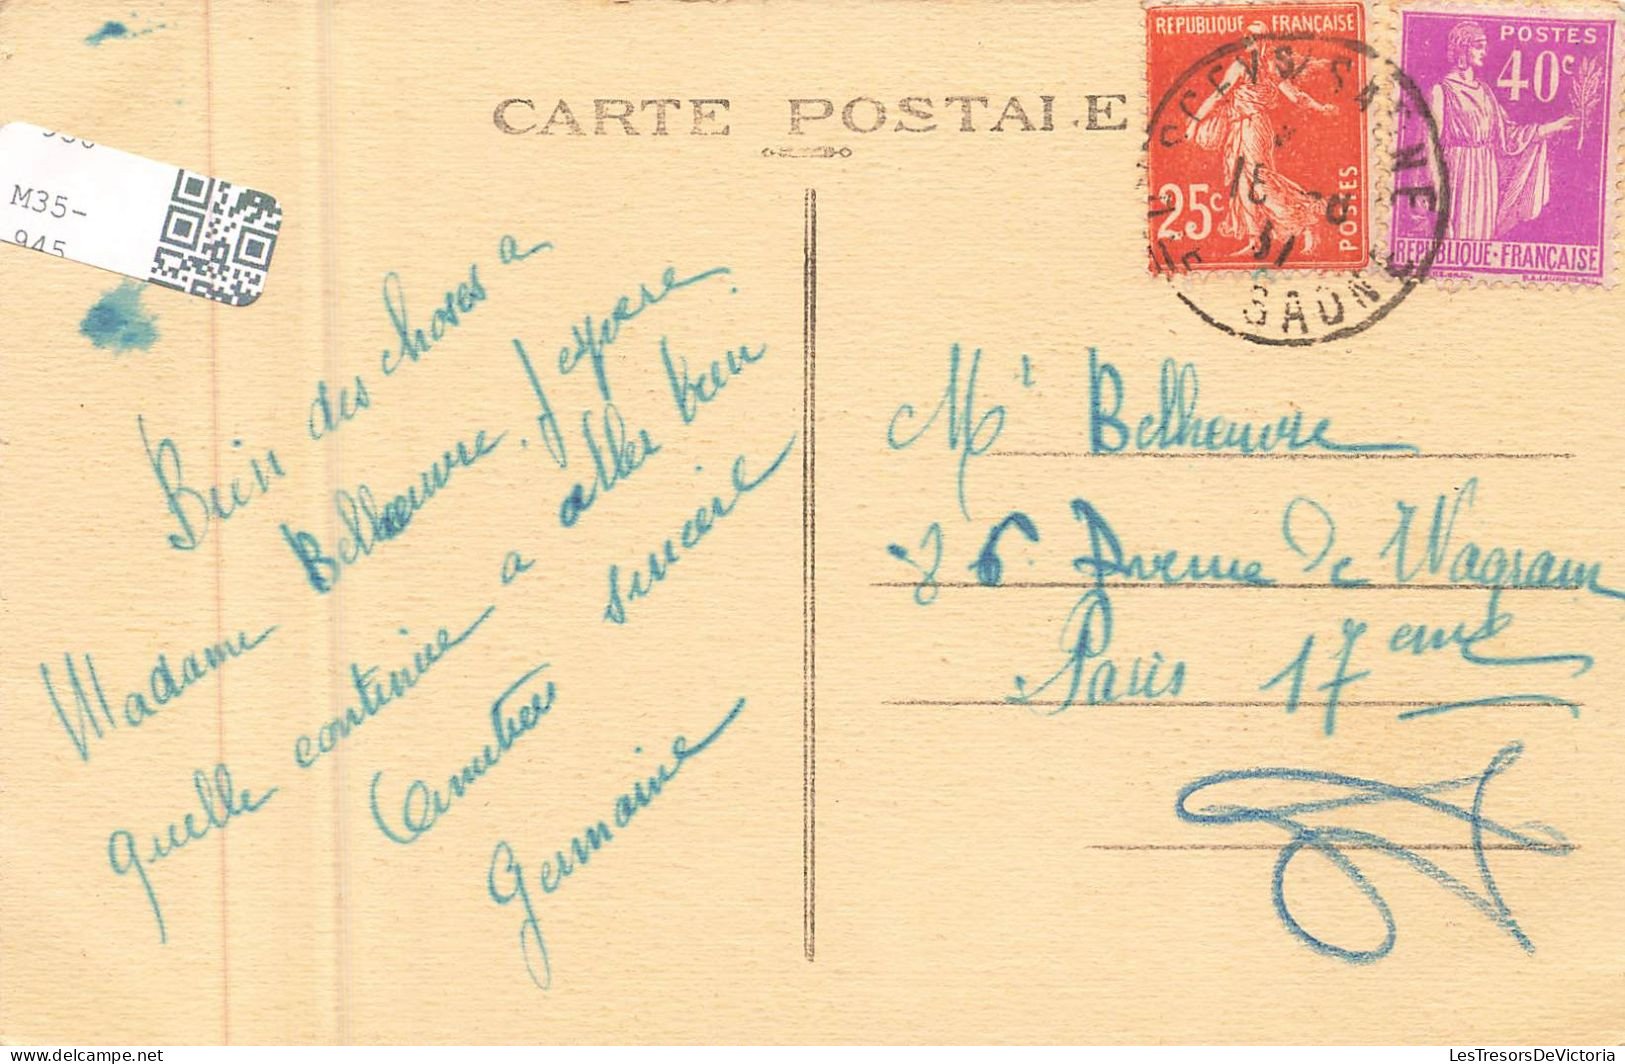 CARTE POSTALE
REPUBLIQUE FRANÇAISE
25c
POSTES
POSTES
40c
REPUBLIQUE·FRANÇAISE
SAONE
M35-
945
Bien des choses a
Madame Belheuvre. J'espere
quelle continue a aller bien.
Amities sincere
Germaine
Mr Belheuvre
86. Avenue de Wagram
Paris 17eme
LesTresorsDeVictoria
delcampe.net